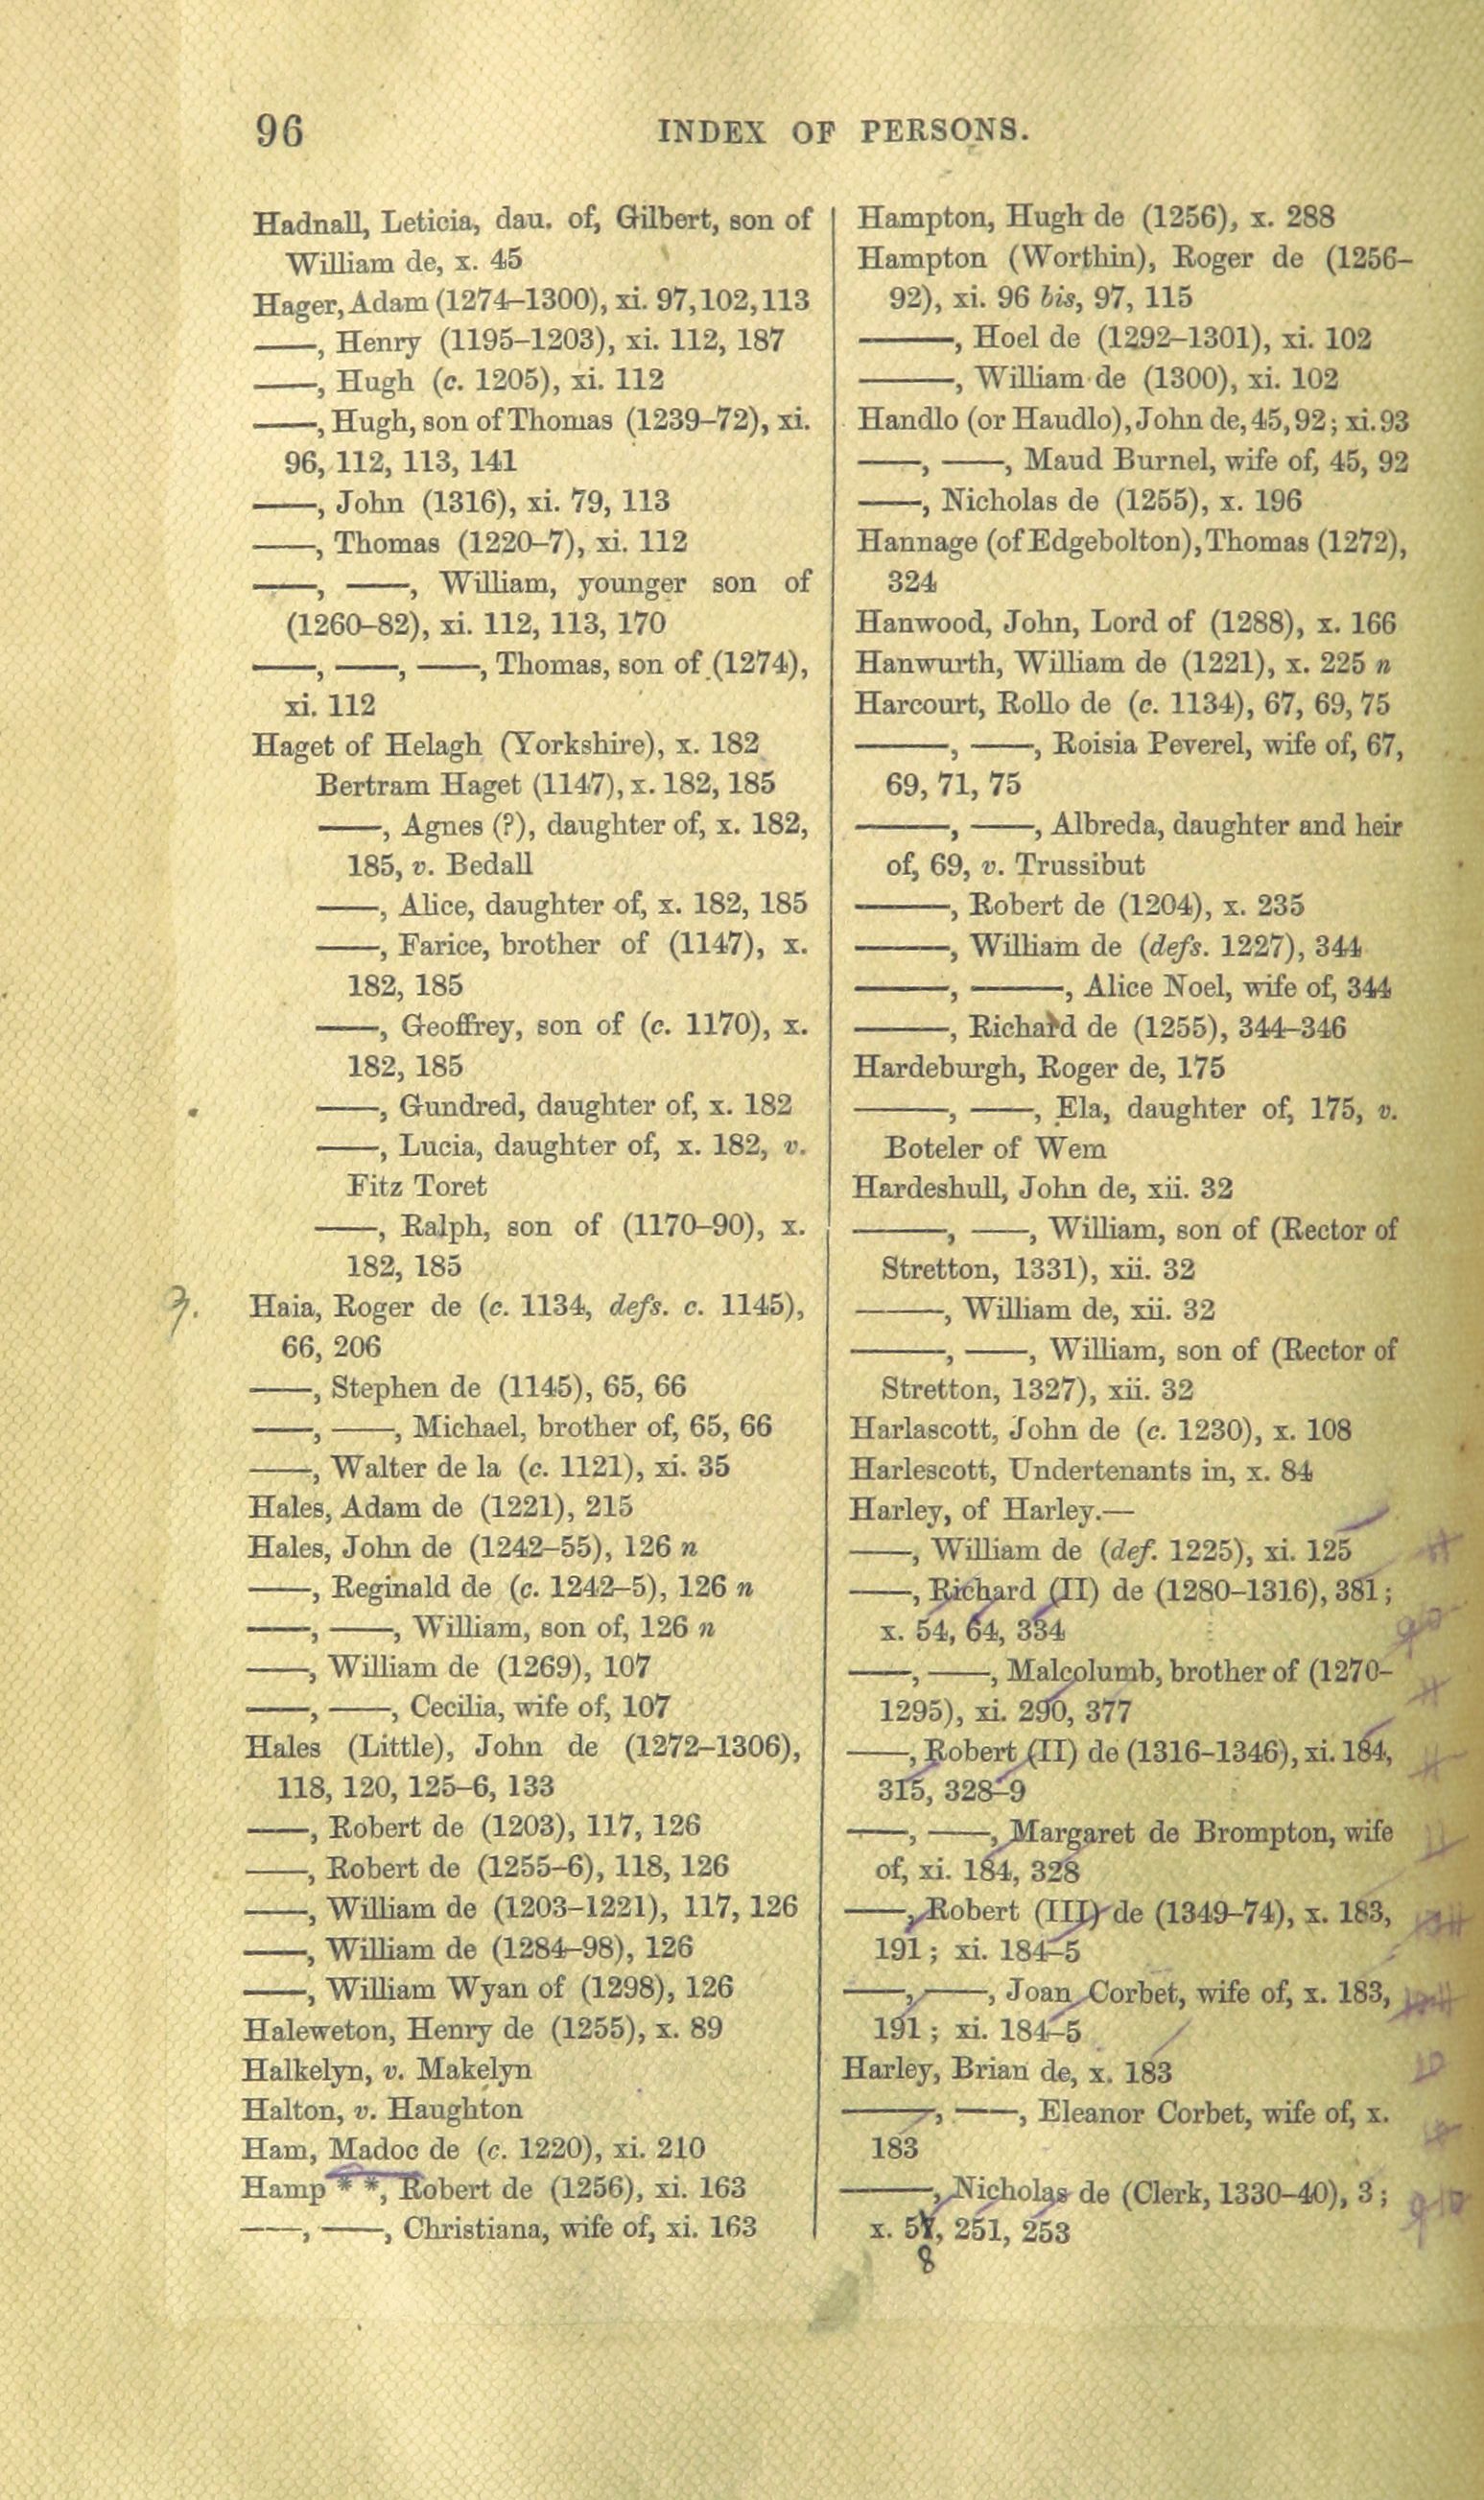 96
INDEX OF PERSONS.
Hadnall, Leticia, dau. of, Gilbert, son of
William de, x. 45
Hager, Adam (1274–1300), xi. 97, 102, 113
——, Henry (1195–1203), xi. 112, 187
——, Hugh (c. 1205), xi. 112
——, Hugh, son of Thomas (1239–72), xi.
96, 112, 113, 141
——, John (1316), xi. 79, 113
——, Thomas (1220–7), xi. 112
——, ——, William, younger son of
(1260–82), xi. 112, 113, 170
——, ——, ——, Thomas, son of (1274),
xi. 112
Haget of Helagh (Yorkshire), x. 182
Bertram Haget (1147), x. 182, 185
——, Agnes (?), daughter of, x. 182,
185, v. Bedall
——, Alice, daughter of, x. 182, 185
——, Farice, brother of (1147), x.
182, 185
——, Geoffrey, son of (c. 1170), x.
182, 185
——, Gundred, daughter of, x. 182
——, Lucia, daughter of, x. 182, v.
Fitz Toret
——, Ralph, son of (1170–90), x.
182, 185
Haia, Roger de (c. 1134, defs. c. 1145),
66, 206
——, Stephen de (1145), 65, 66
——, ——, Michael, brother of, 65, 66
——, Walter de la (c. 1121), xi. 35
Hales, Adam de (1221), 215
Hales, John de (1242–55), 126 n
——, Reginald de (c. 1242–5), 126 n
——, ——, William, son of, 126 n
——, William de (1269), 107
——, ——, Cecilia, wife of, 107
Hales (Little), John de (1272–1306),
118, 120, 125–6, 133
——, Robert de (1203), 117, 126
——, Robert de (1255–6), 118, 126
——, William de (1203–1221), 117, 126
——, William de (1284–98), 126
——, William Wyan of (1298), 126
Haleweton, Henry de (1255), x. 89
Halkelyn, v. Makelyn
Halton, v. Haughton
Ham, Madoc de (c. 1220), xi. 210
Hamp * *, Robert de (1256), xi. 163
——, ——, Christiana, wife of, xi. 163
Hampton, Hugh de (1256), x. 288
Hampton (Worthin), Roger de (1256–
92), xi. 96 bis, 97, 115
———, Hoel de (1292–1301), xi. 102
———, William de (1300), xi. 102
Handlo (or Haudlo), John de, 45, 92; xi. 93
——, ——, Maud Burnel, wife of, 45, 92
——, Nicholas de (1255), x. 196
Hannage (of Edgebolton), Thomas (1272),
324
Hanwood, John, Lord of (1288), x. 166
Hanwurth, William de (1221), x. 225 n
Harcourt, Rollo de (c. 1134), 67, 69, 75
———, ——, Roisia Peverel, wife of, 67,
69, 71, 75
———, ——, Albreda, daughter and heir
of, 69, v. Trussibut
———, Robert de (1204), x. 235
———, William de (defs. 1227), 344
———, ———, Alice Noel, wife of, 344
———, Richard de (1255), 344–346
Hardeburgh, Roger de, 175
———, ——, Ela, daughter of, 175, v.
Boteler of Wem
Hardeshull, John de, xii. 32
———, ——, William, son of (Rector of
Stretton, 1331), xii. 32
———, William de, xii. 32
———, ——, William, son of (Rector of
Stretton, 1327), xii. 32
Harlascott, John de (c. 1230), x. 108
Harlescott, Undertenants in, x. 84
Harley, of Harley.—
——, William de (def. 1225), xi. 125
——, Richard (II) de (1280–1316), 381;
x. 54, 64, 334
——, ——, Malcolumb, brother of (1270–
1295), xi. 290, 377
——, Robert (II) de (1316–1346), xi. 184,
315, 328–9
——, ——, Margaret de Brompton, wife
of, xi. 184, 328
——, Robert (III) de (1349–74), x. 183,
191; xi. 184–5
——, ——, Joan Corbet, wife of, x. 183,
191; xi. 184–5
Harley, Brian de, x. 183
———, ——, Eleanor Corbet, wife of, x.
183
———, Nicholas de (Clerk, 1330–40), 3;
x. 57, 251, 253
8